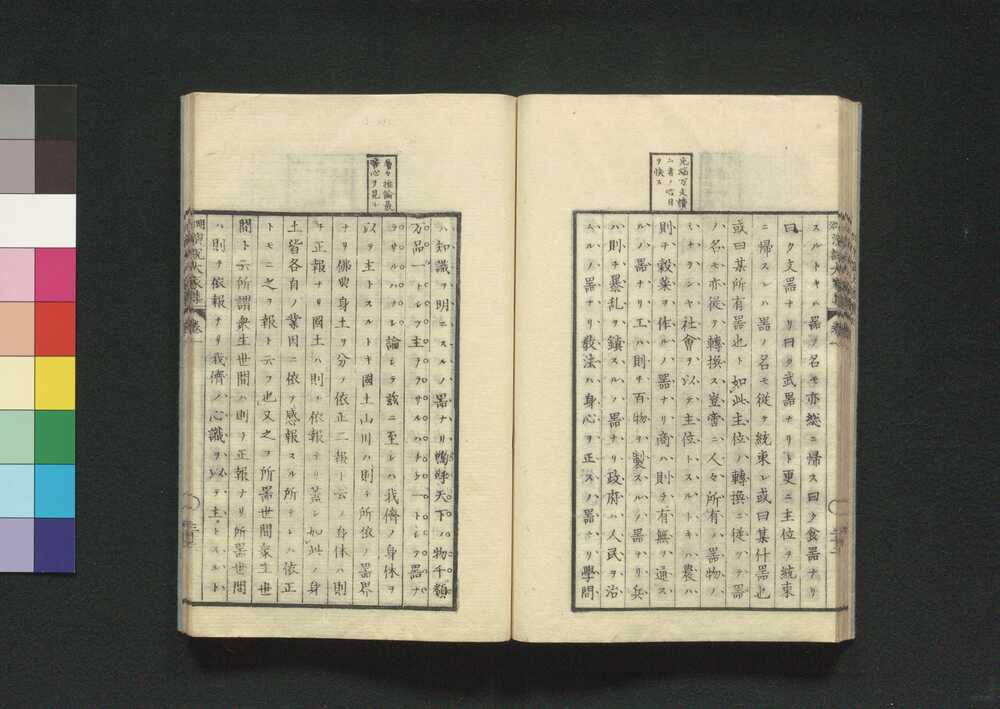 スルトキハ器ノ名モ亦總ニ帰ス曰ク食器ナリ
曰ク文器ナリ曰ク武器ナリト更ニ主位ヲ統束
ニ帰スレハ器ノ名モ従テ統束シ或曰某什器也
或曰某所有器也ト如此主位ハ轉換ニ従ツテ器
ハ名モ亦従テ轉換ス豈啻ニ人々所有ハ器物ノ
ミナランヤ社會ヲ以テ主位トスルトキハ農ハ
則チ穀菜ヲ作ルノ器ナリ商ハ則チ有無ヲ通ス
ルノ器ナリ工ハ則チ百物ヲ製スルノ器ナリ兵
ハ則チ暴乱ヲ鎮スルノ器ナリ政府ハ人民ヲ治
ムルノ器ナリ教法ハ身心ヲ正スノ器ナリ學問
ハ知識ヲ明ニスルノ器ナリ嗚呼天下ノ物千類
万品一トシテ主ヲラサルハナク一トシテ器ナ
ラサルハナシ論シテ玆ニ至レハ我儕ノ身体ヲ
以テ主トスルトキ國土山川ハ則チ所依ノ器界
ナリ佛典身土ヲ分ツテ依正二報ト云フ身体ハ則
チ正報ナリ國土ハ則チ依報ナリ蓋シ如此ノ身
土皆各自ノ業因ニ依テ感報スル所ナレハ依正
トモニ之ヲ報ト云フ也又之ヲ所謂器世間衆生世
間ト云所謂衆生世間ハ則チ正報ナリ所器世間
ハ則チ依報ナリ我儕ノ心識ヲ以テ主トスルト